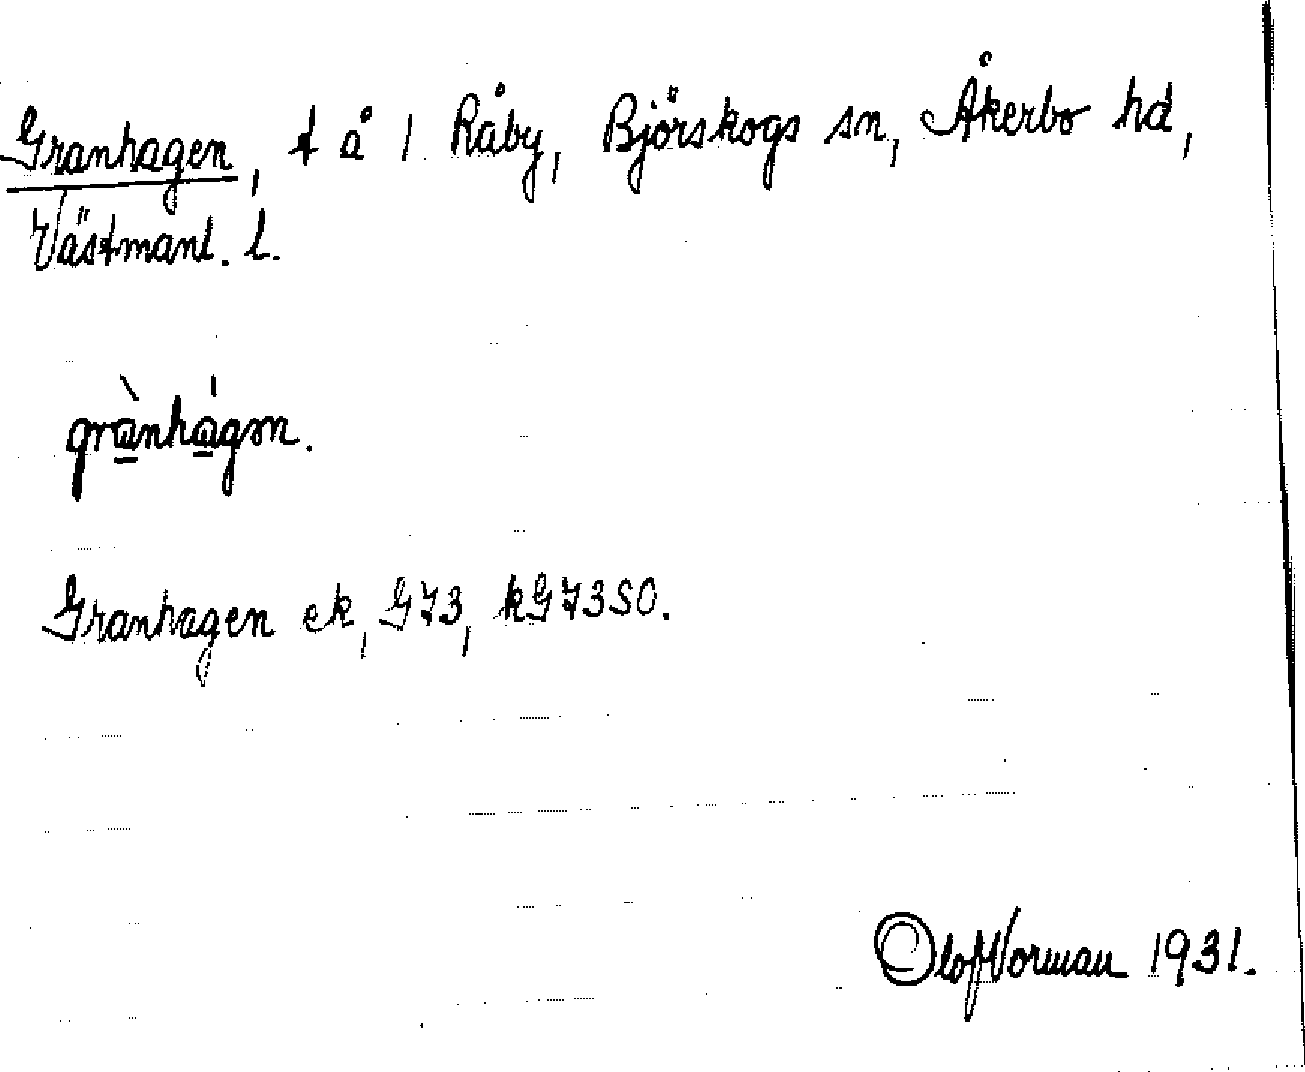 Granhagen, t å 1 Råby, Björskogs sn, Åkerbo hd,
Västmanl. l.
grànhágən.
Granhagen ek, G73, kG73SO.
Olof Norman 1931.